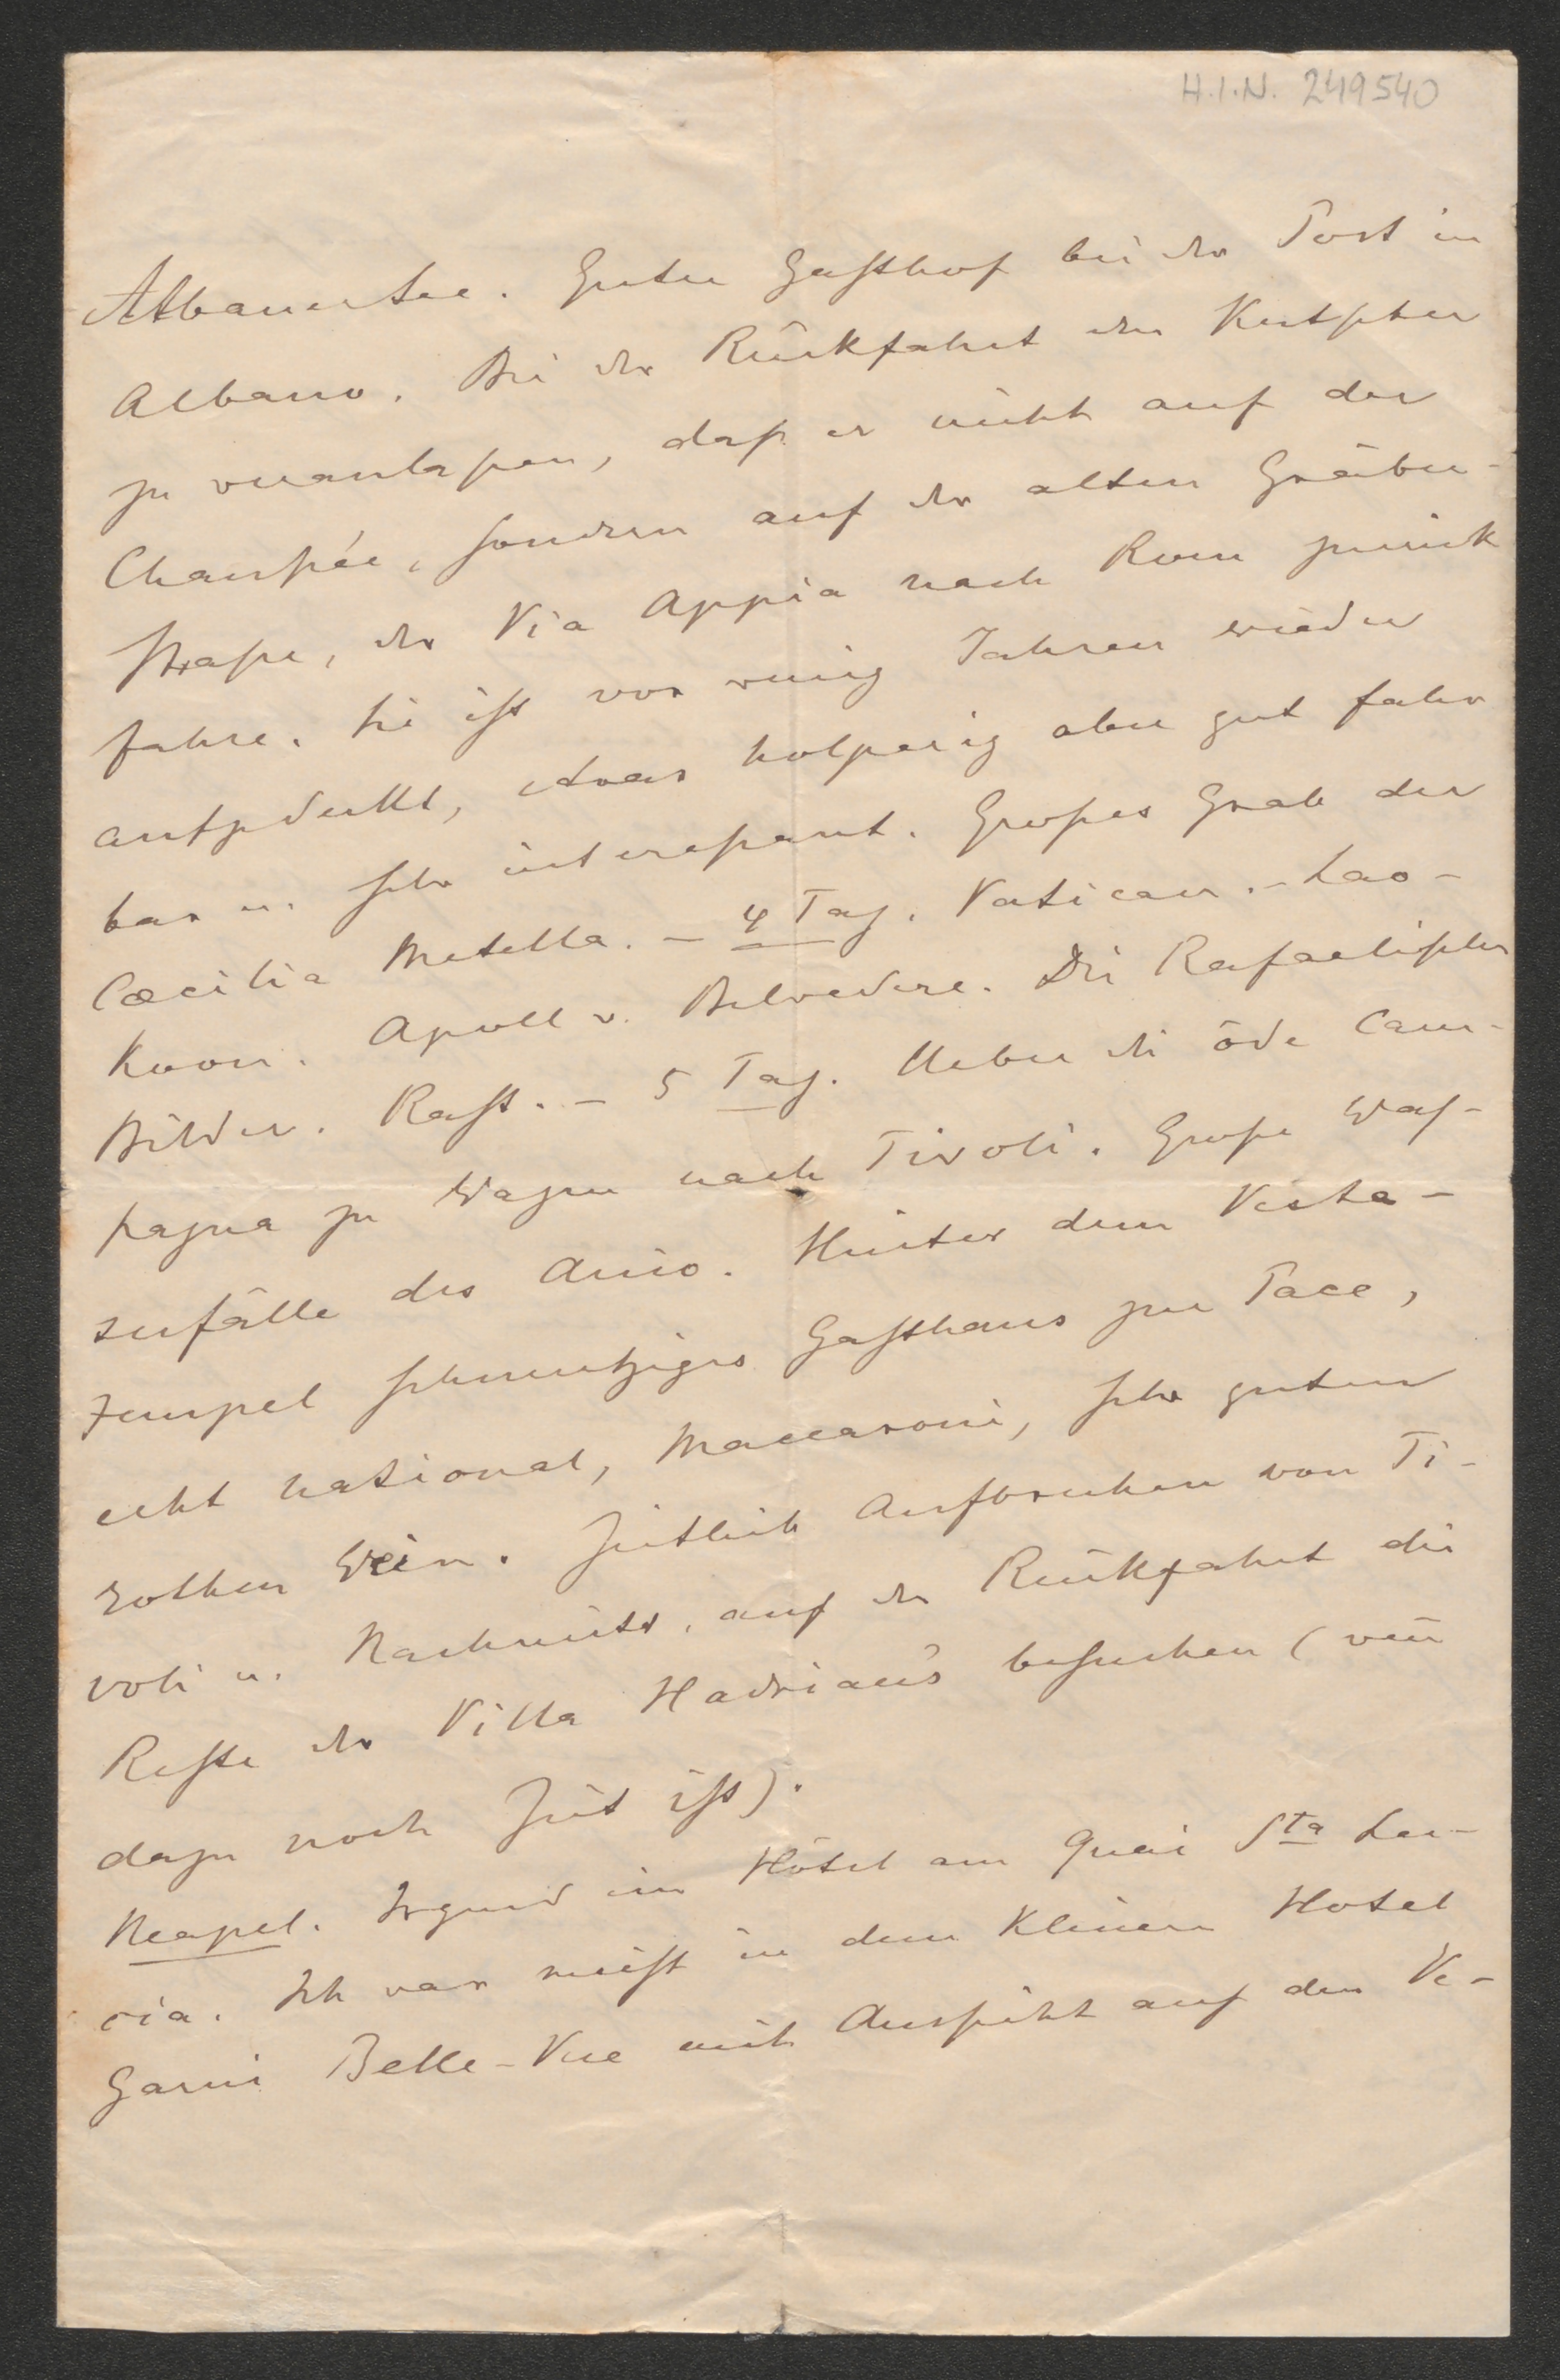 H.I.N. 249540
Albanersee. Guter Gasthof bei der Post in
Albano. Bei der Rückfahrt den Kutscher
zu veranlaßen, daß er nicht auf der
Chaußée, sondern auf der alten Gräber-
straße, der Via Appia nach Rom zurück
fahre. Sie ist vor wenig Jahren wieder
aufgedeckt, etwas holperig aber gut fahr
bar u. sehr intereßant. Großes Grab der
Cæcilia Metella. – 4 Tag. Vatican. – Lao-
koon. Apoll v. Belvedere. Die Rafaelischen
Bilder. Rast. – 5 Tag. Ueber die öde Cam-
pagna zu Wagen nach Tivoli. Große Was-
serfälle des Anio. Hinter dem Vesta-
tempel schmutziges Gasthaus zur Pace,
echt national, Maccaroni, sehr guten
rothen Wein. Zeitlich Aufbruchen von Ti-
voli u. Nachmitt. auf der Rückfahrt die
Reste der Villa Hadrian's besuchen (wen̄
dazu noch Zeit ist).
Neapel. Irgend ein Hôtel am Quai Sta Lu-
cia. Ich war meist in dem kleinen Hotel
Garni Belle-Vue mit Aussicht auf den Ve-